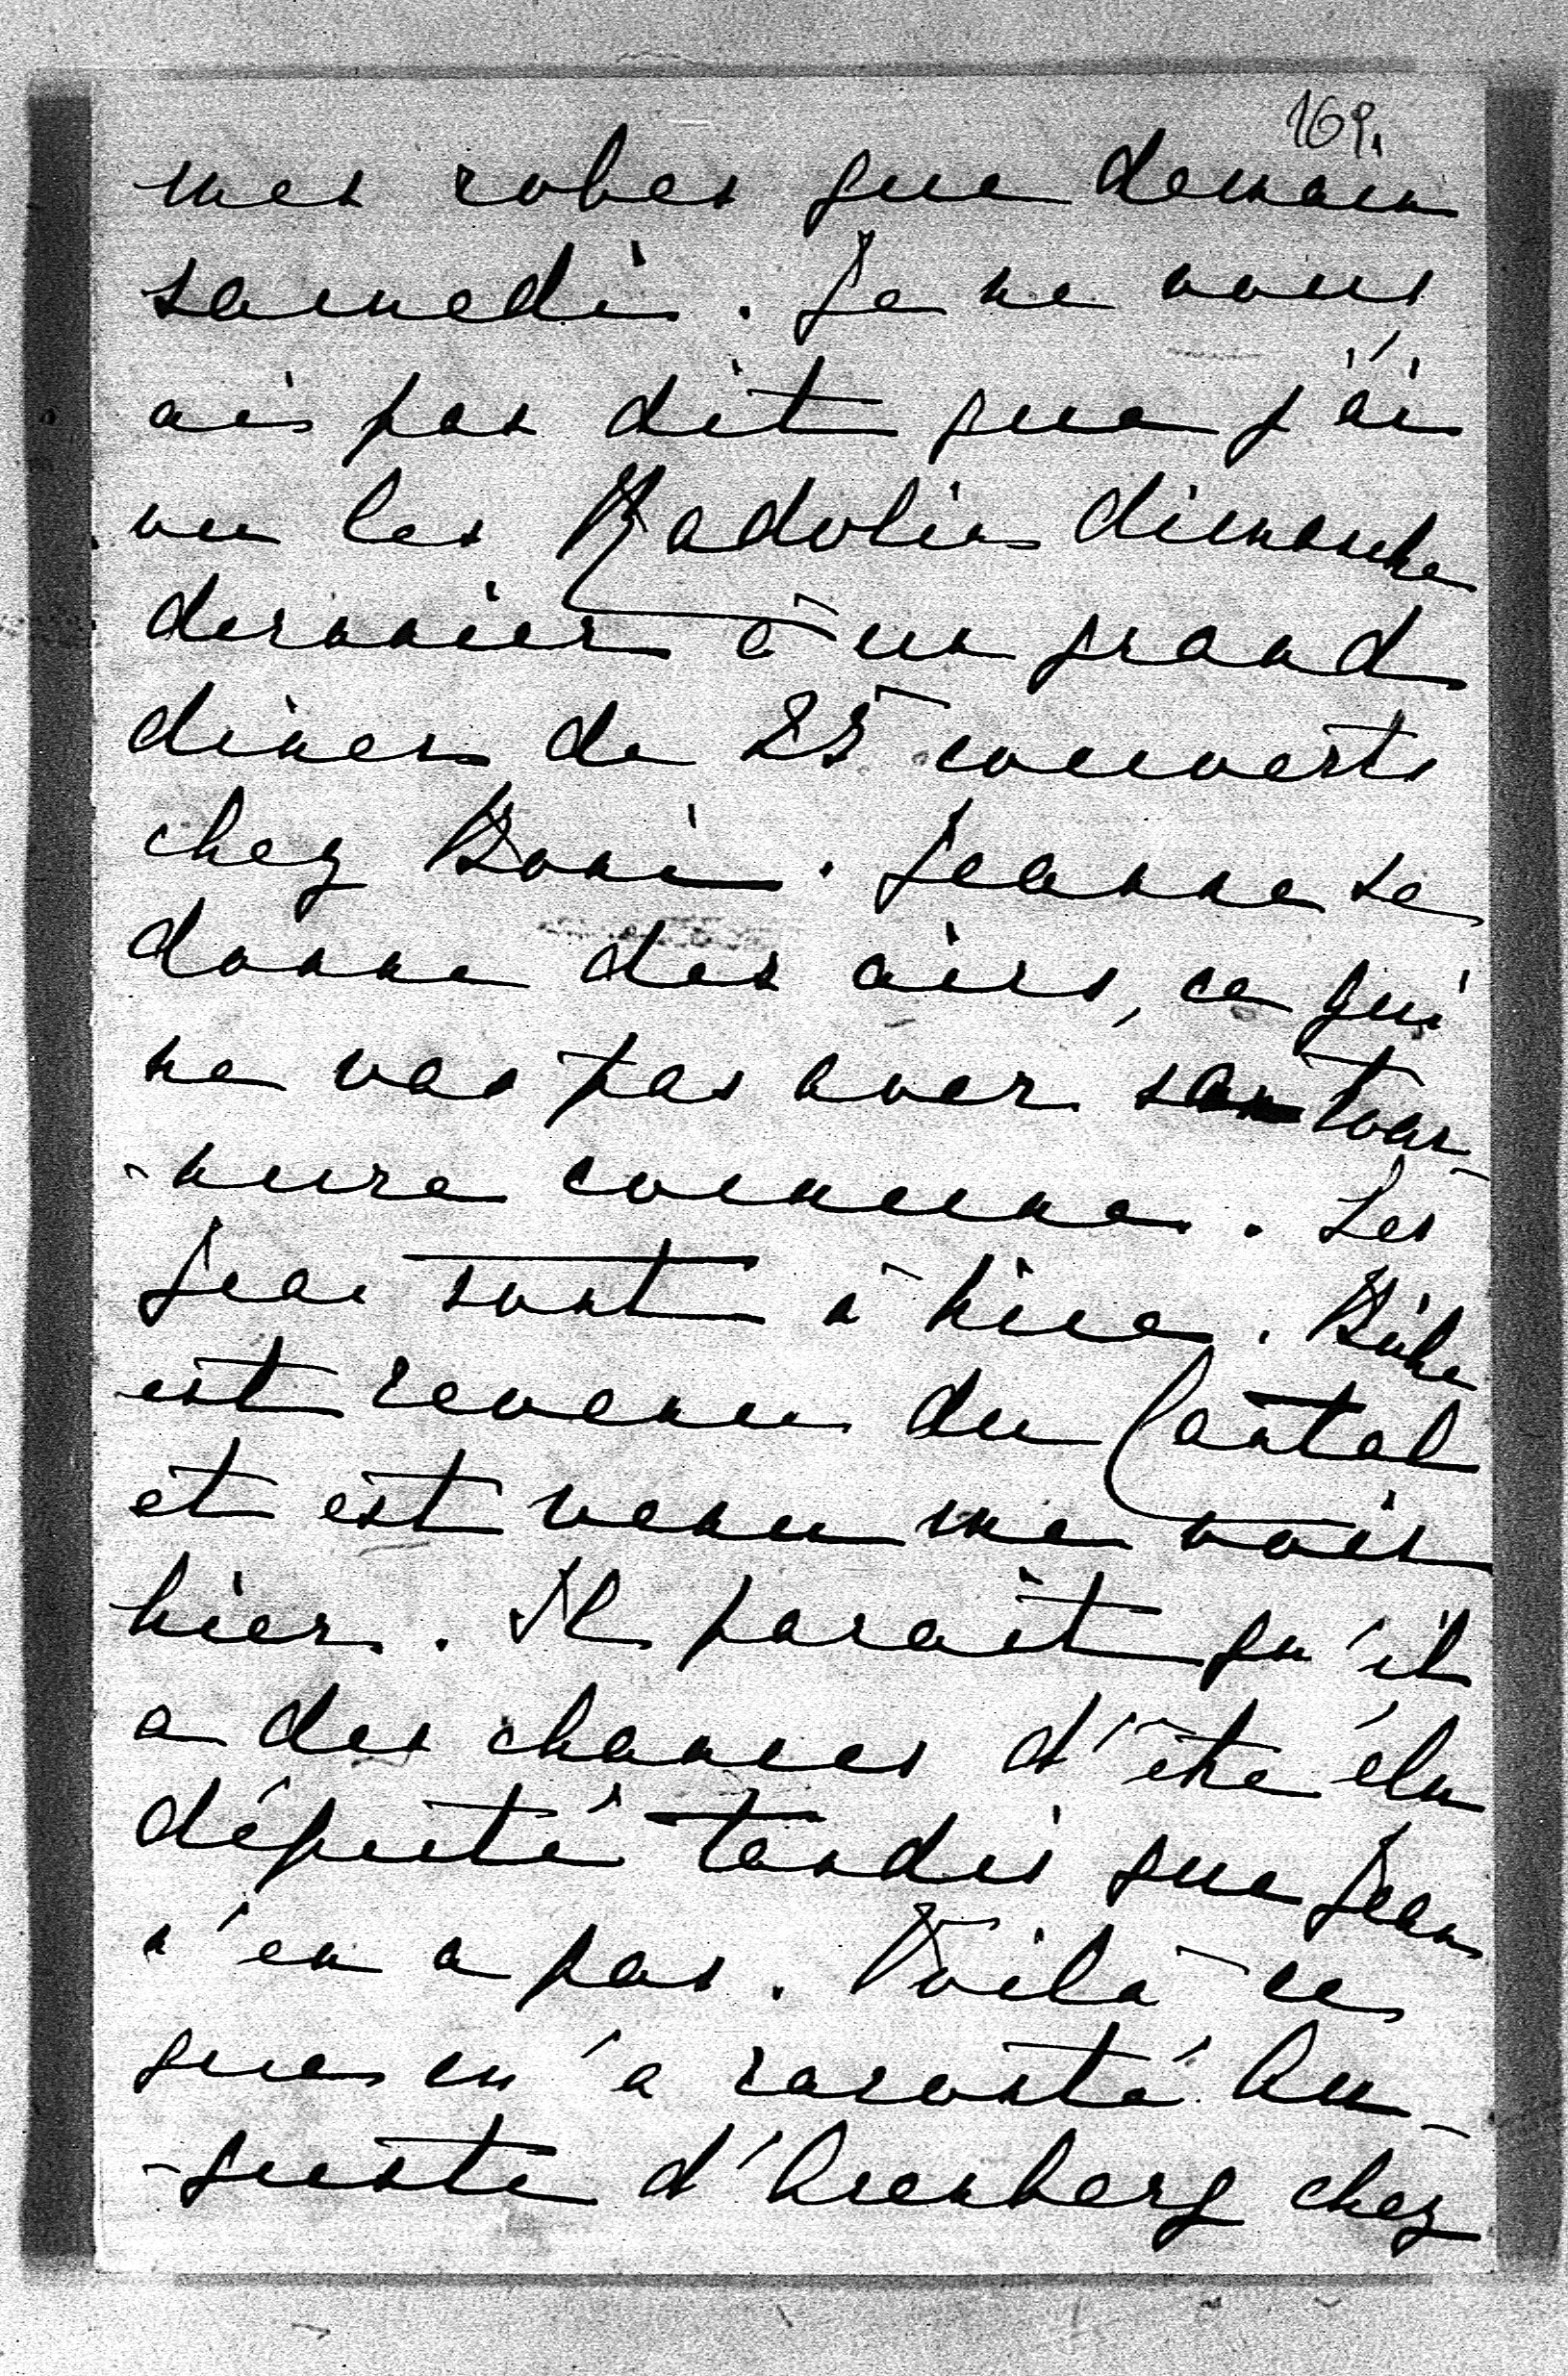 169.
mes robes que demain
samedi. Je ne vous
ais pas dit que j'ai
vu les Radolin dimanche
dernier à un grand
diner de 25 couverts
chez Boni. Jeanne se
donne des airs, ce qui
ne vas pas avec sa tour-
-nure commune. Les
Jean sont à Nice. Biche
est revenu du Cantal
et est venu me voir
hier. Il parait qu'il
a des chances d'être élu
député tandis que Jean
n'en a pas. Voilà ce
que m'a raconté Au-
-guste d'Arenberg chez